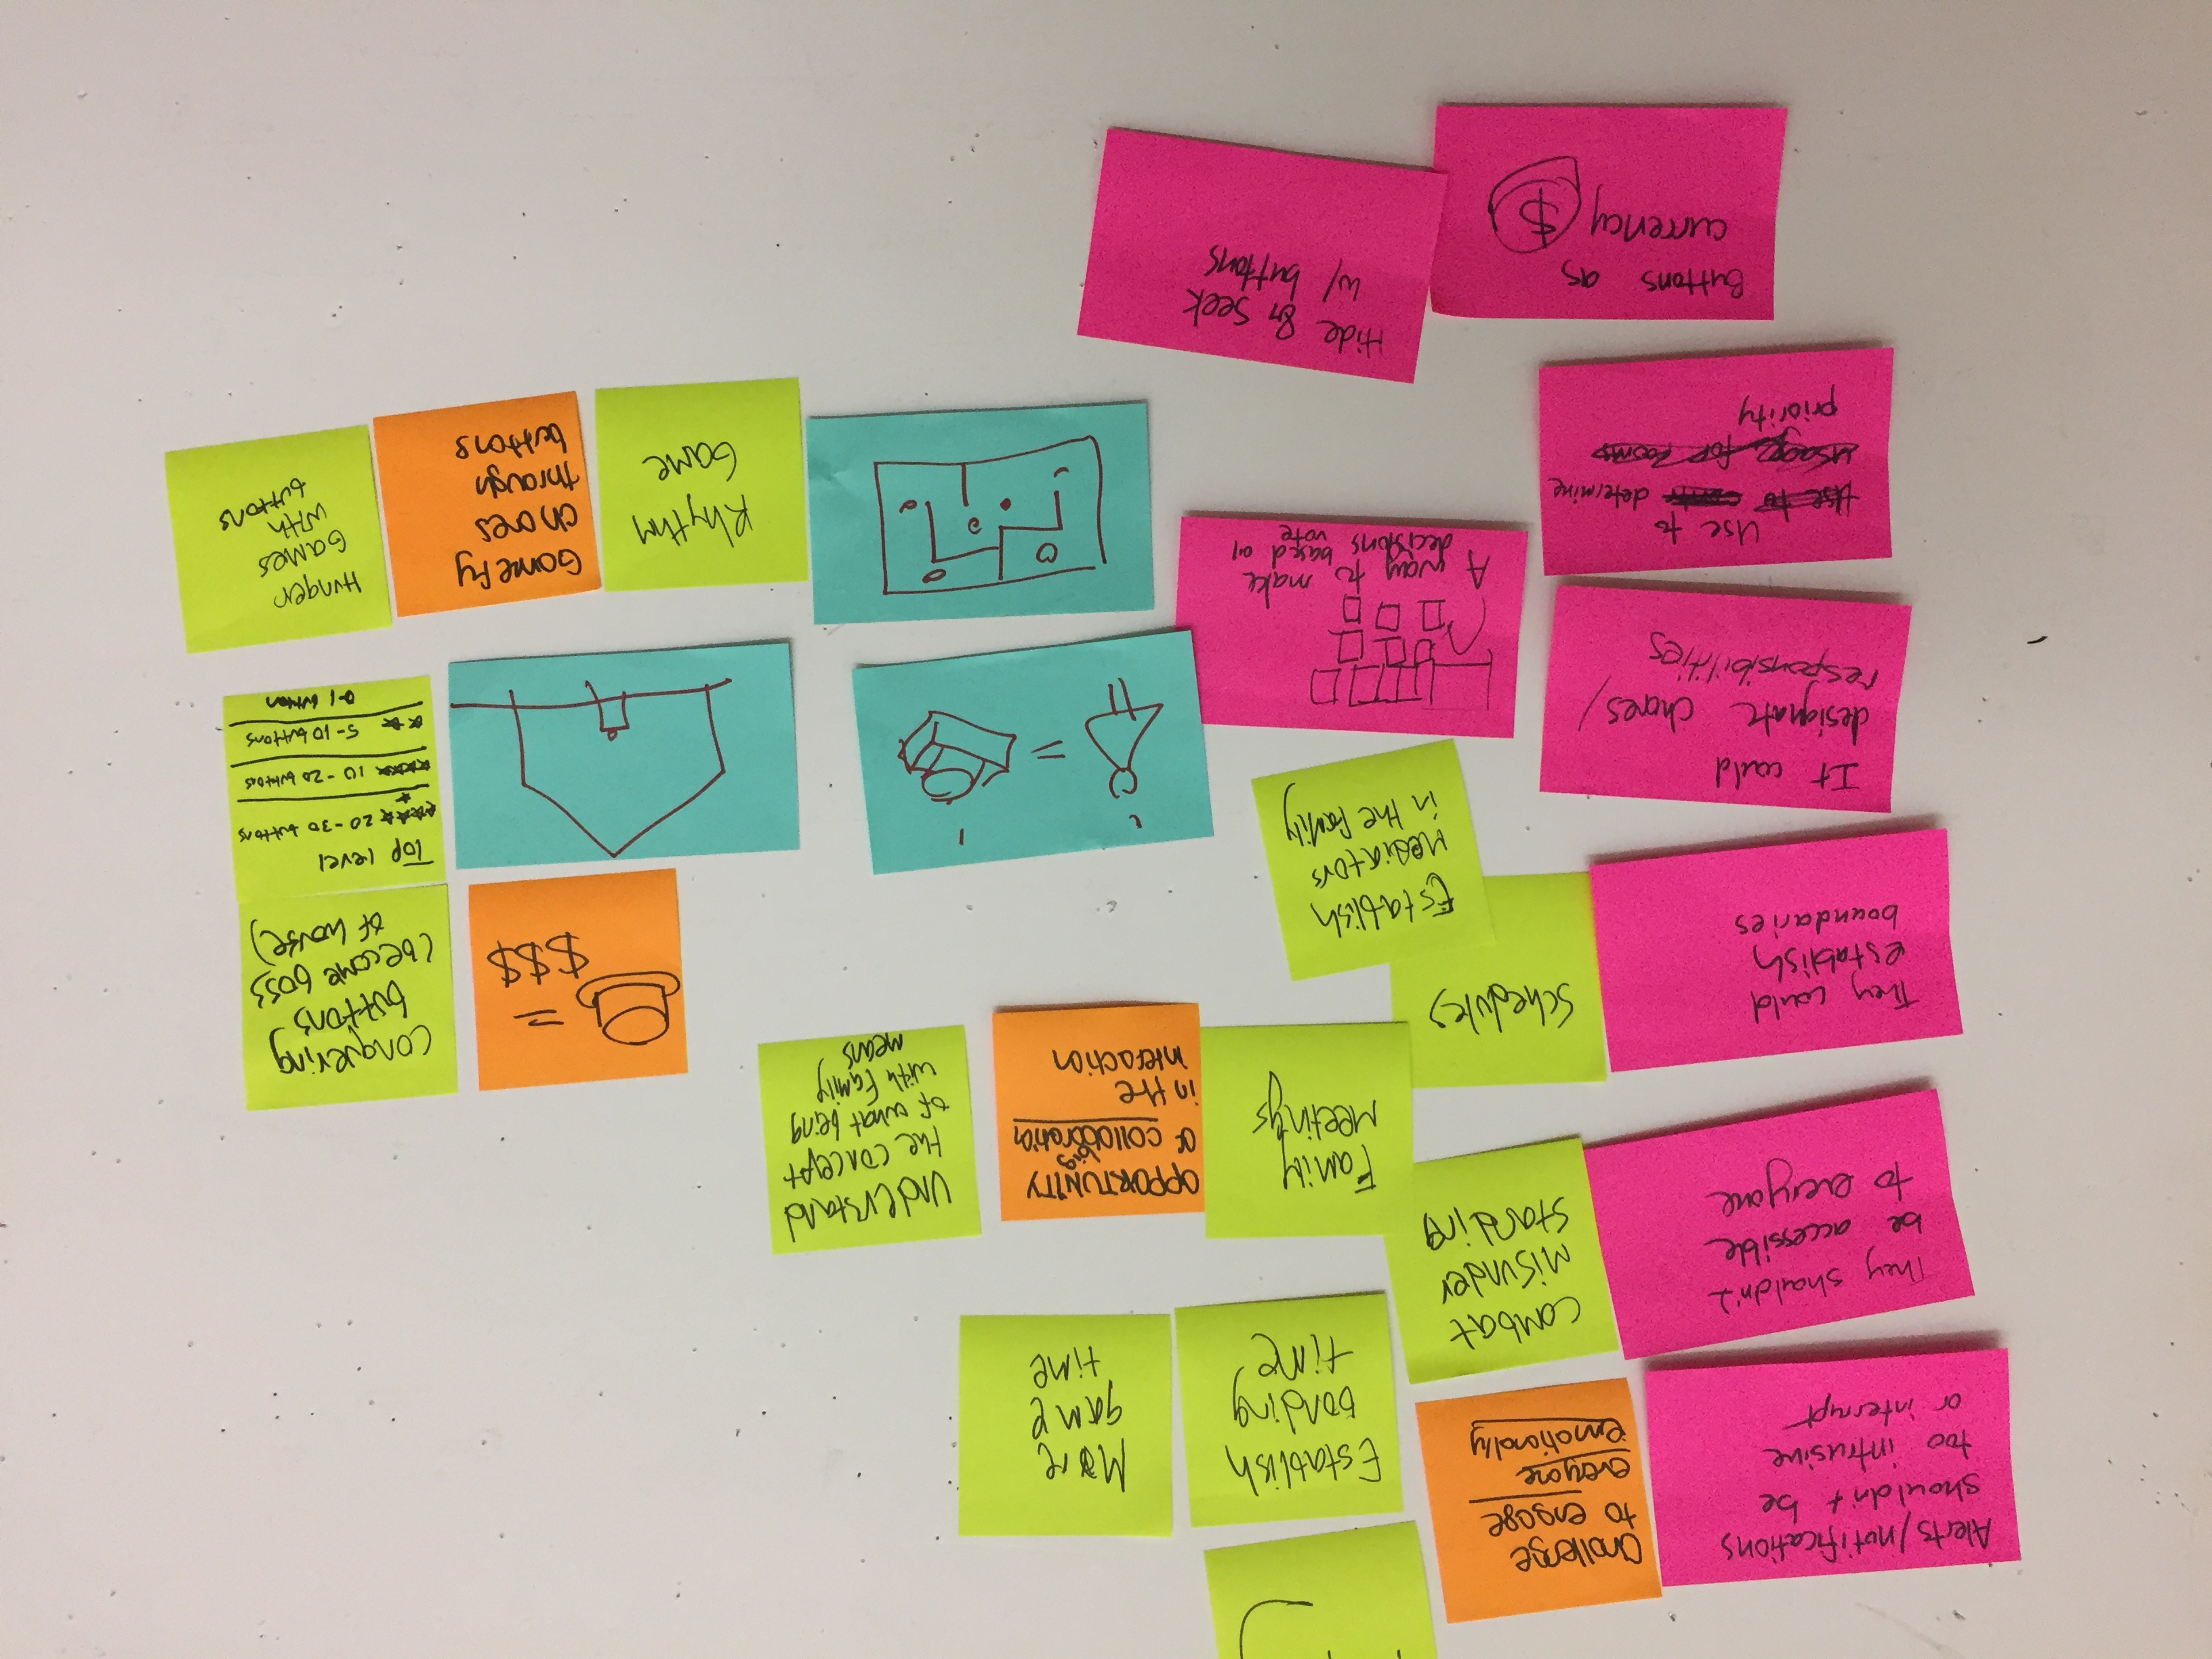 Alerts/notifications
shouldn't be
too intrusive
or interrupt
Challenge
to engage
everyone
emotionally
Establish
bonding
time
More
game
time
They shouldn't
be accessible
to everyone
Combat
misunder
standing
Family
Meetings
OPPORTUNITY
of big collaboration
in the
interaction
Understand
the concept
of what being
with Family
means
They could
establish
boundaries
Schedules
Establish
Mediators
in the family
= $$$
Conquering
buttons
(become boss
of house)
Top level
★★★★★ 20-30 buttons
★★★★ 10-20 buttons
★★ 5-10 buttons
0-1 button
=
It could
designate chores/
responsibilities
A way to make
decisions based on
vote
Use to
determine
priority
Rhythm
Game
Gamefy
chores
through
buttons
Hunger
Games
with
buttons
Buttons as
currency $
Hide & Seek
w/ buttons